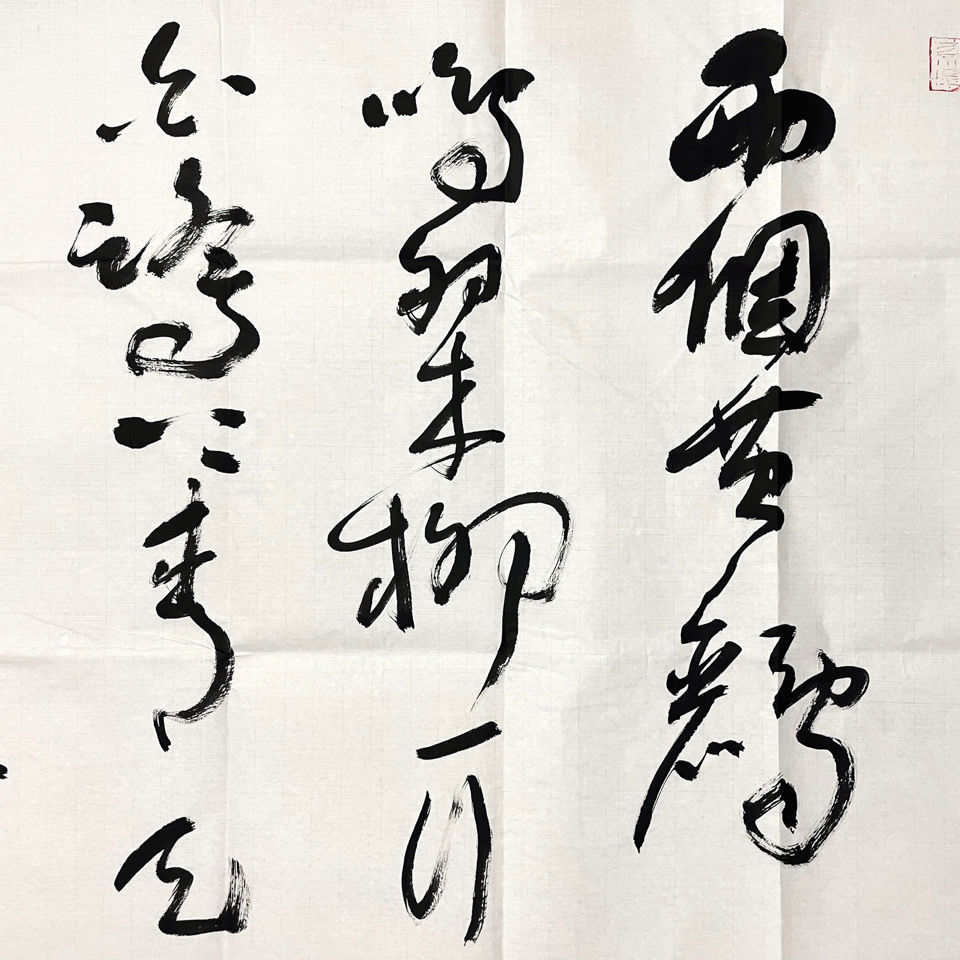 兩個黃鸝
鳴翠柳一行
白鷺上青天